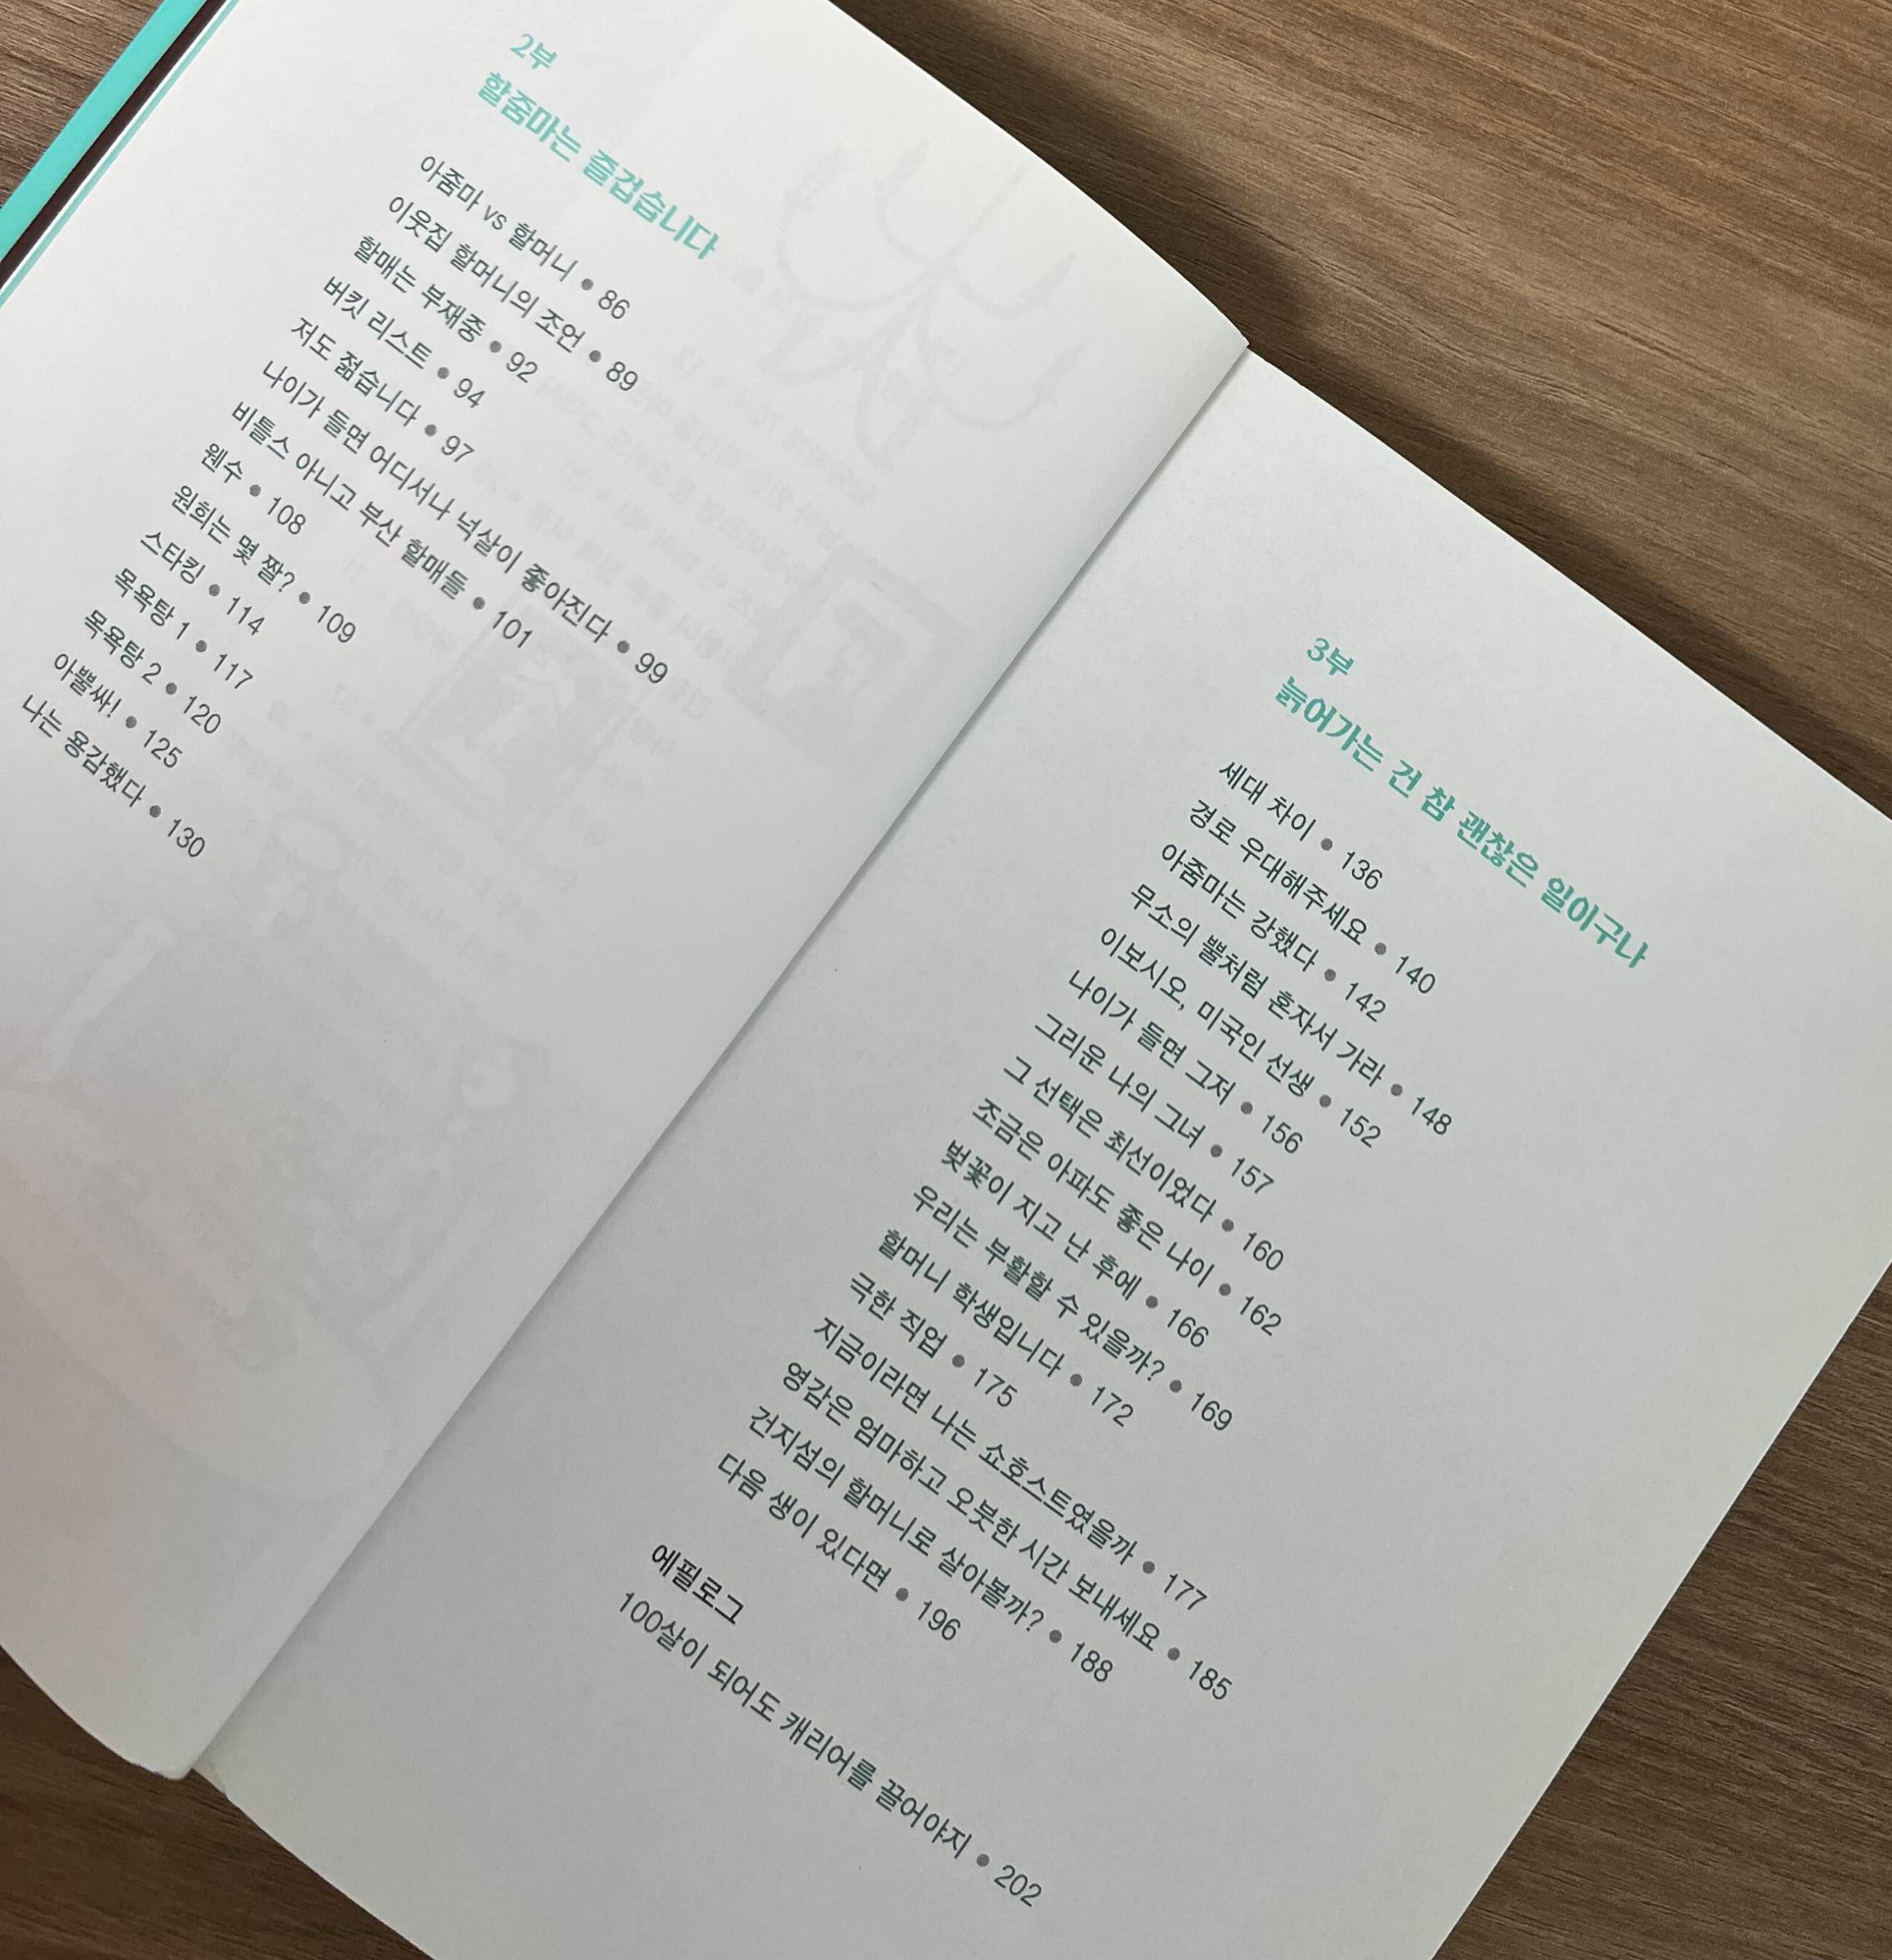 2부
할줌마는 즐겁습니다
아줌마 vs 할머니 • 86
이웃집 할머니의 조언 • 89
할매는 부재중 • 92
버킷 리스트 • 94
저도 젊습니다 • 97
나이가 들면 어디서나 넉살이 좋아진다 • 99
비틀스 아니고 부산 할매들 • 101
웬수 • 108
원희는 몇 짤? • 109
스타킹 • 114
목욕탕 1 • 117
목욕탕 2 • 120
아뿔싸! • 125
나는 용감했다 • 130
3부
늙어가는 건 참 괜찮은 일이구나
세대 차이 • 136
경로 우대해주세요 • 140
아줌마는 강했다 • 142
무소의 뿔처럼 혼자서 가라 • 148
이보시오, 미국인 선생 • 152
나이가 들면 그저 • 156
그리운 나의 그녀 • 157
그 선택은 최선이었다 • 160
조금은 아파도 좋은 나이 • 162
벚꽃이 지고 난 후에 • 166
우리는 부활할 수 있을까? • 169
할머니 학생입니다 • 172
극한 직업 • 175
지금이라면 나는 쇼호스트였을까 • 177
영감은 엄마하고 오붓한 시간 보내세요 • 185
건지섬의 할머니로 살아볼까? • 188
다음 생이 있다면 • 196
에필로그
100살이 되어도 캐리어를 끌어야지 • 202